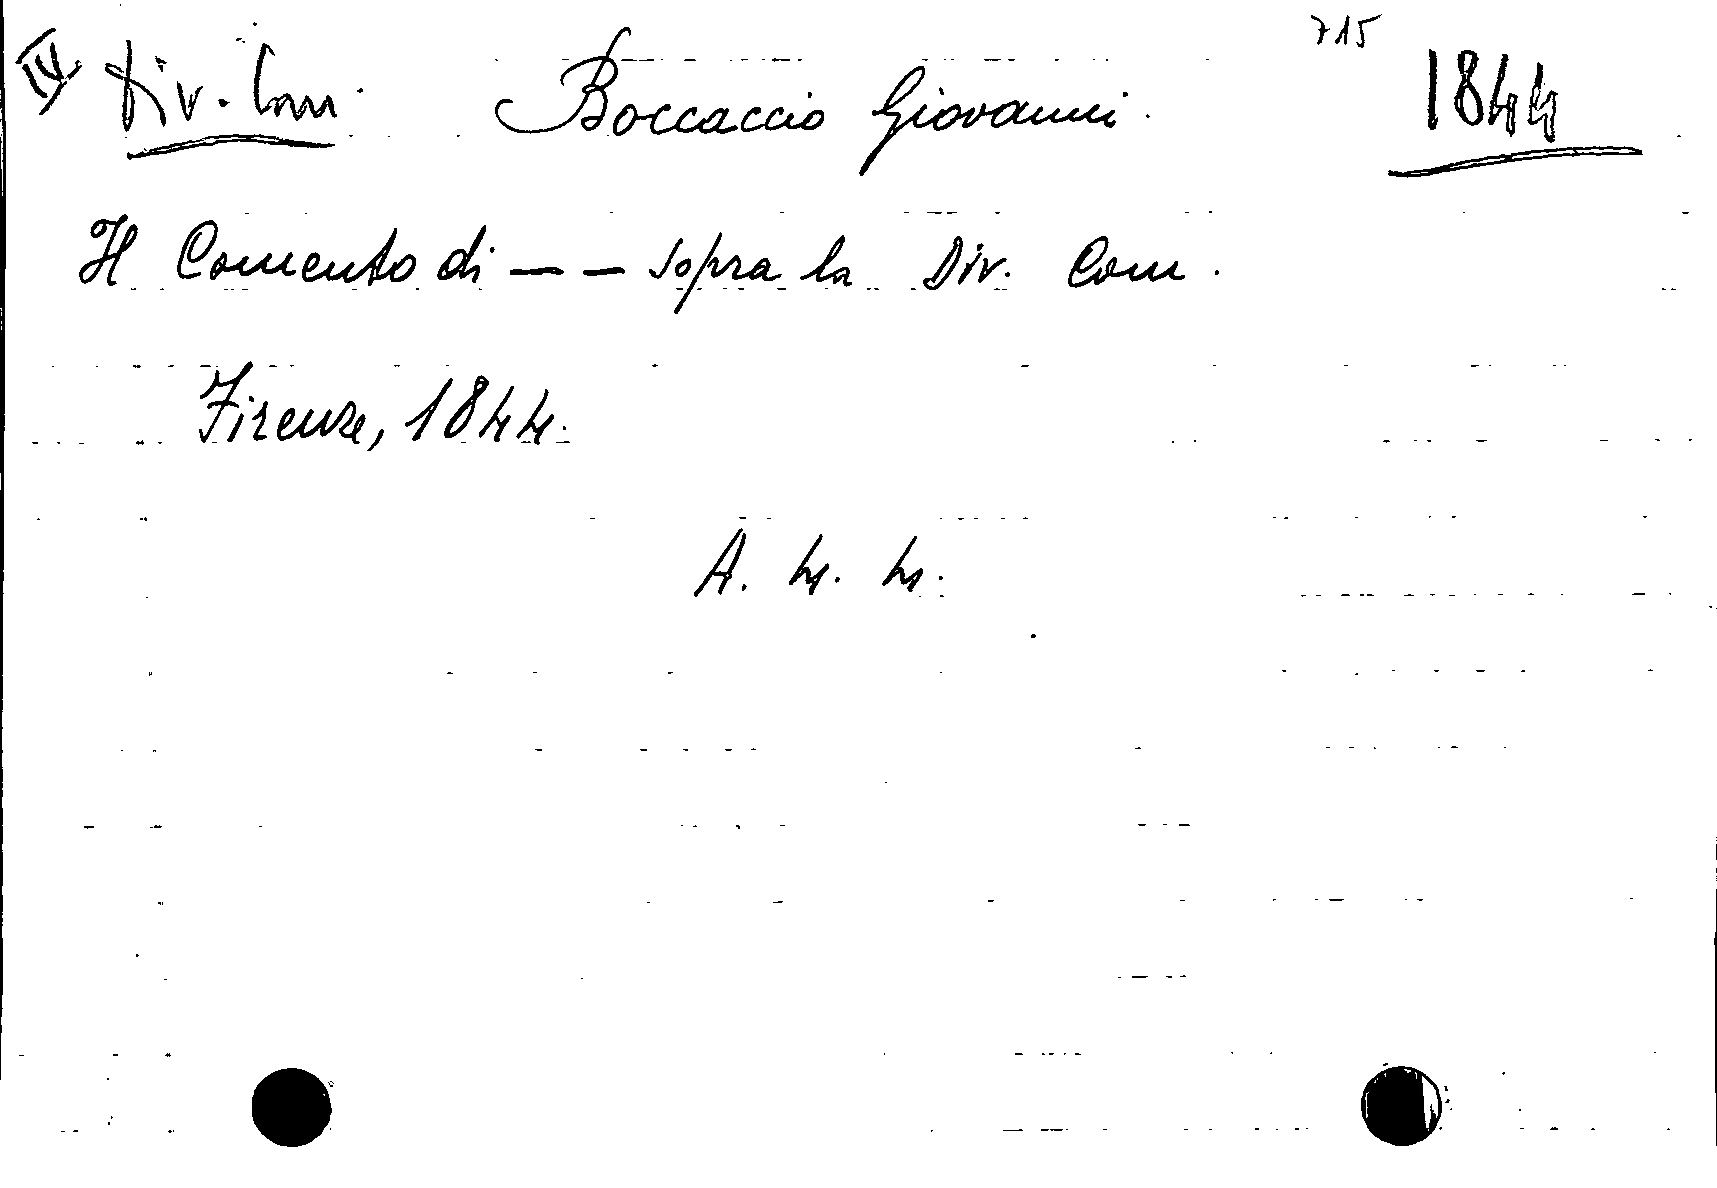 715
IV Div. Com. Boccaccio Giovanni. 1844
Il Comento di — — sopra la Div. Com.
Firenze, 1844.
A. 4. 4.